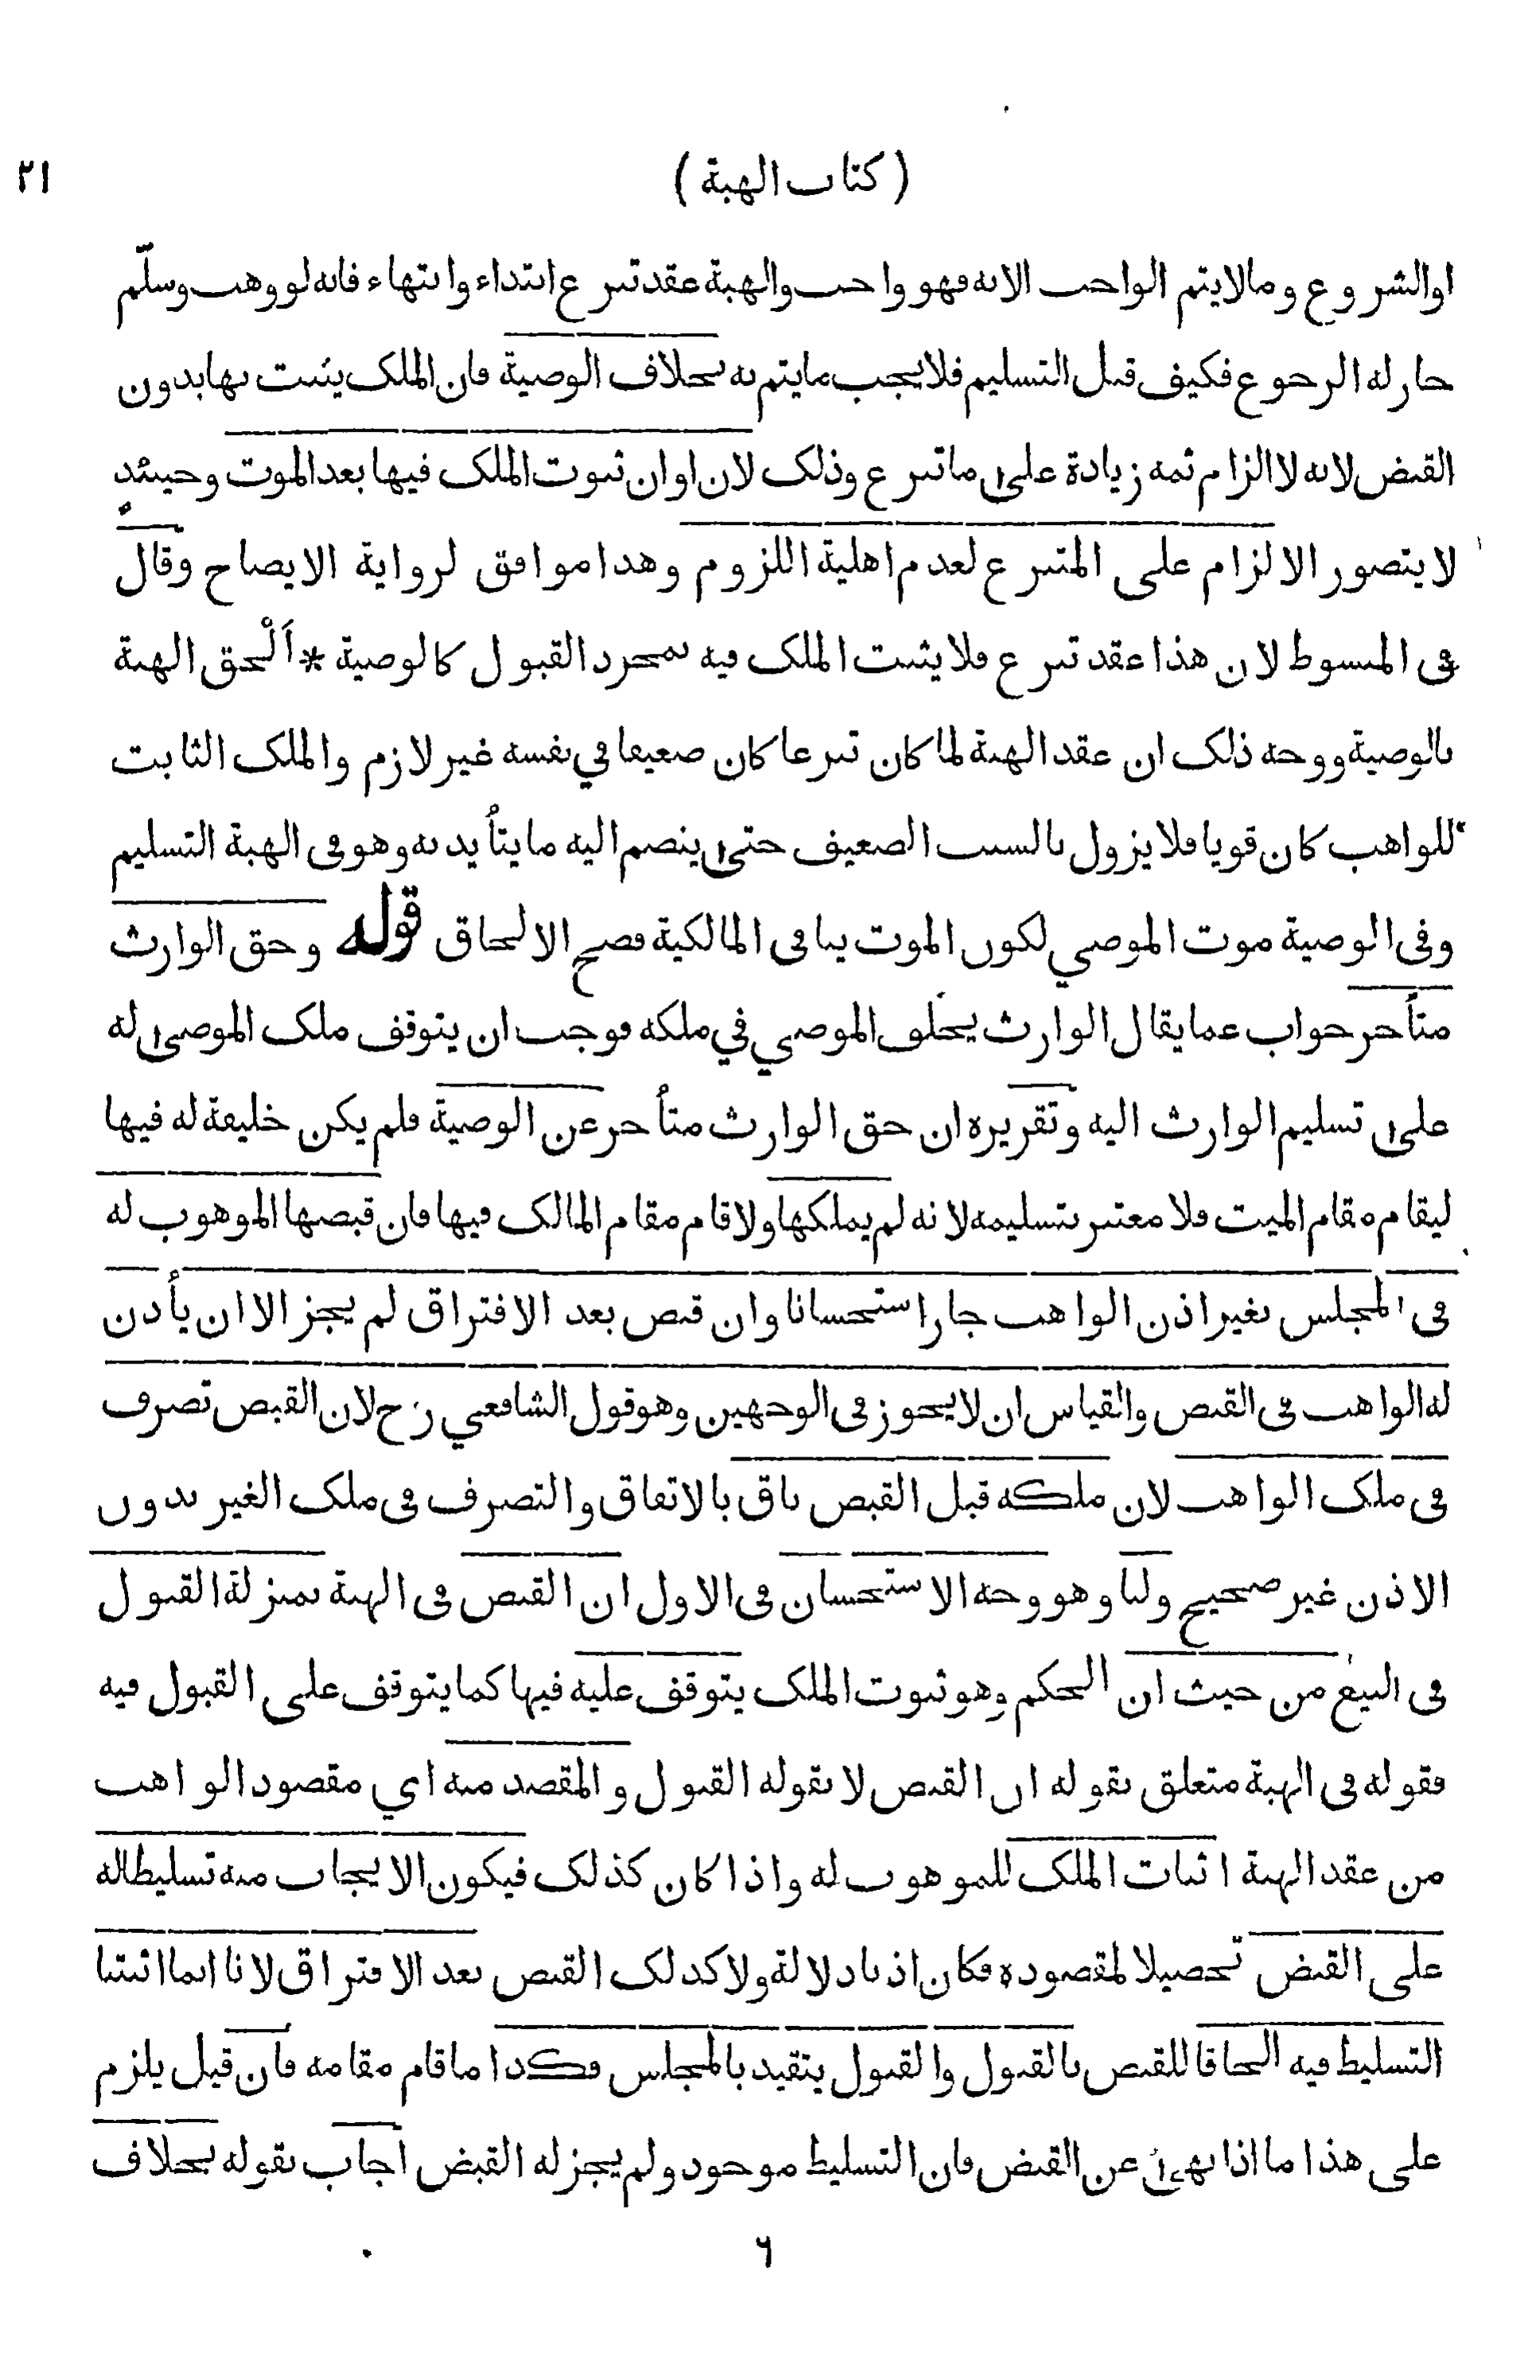 ( كتاب الهبة )
٢١
اوالشروع ومالايتم الواجب الابه فهو واجب والهبة عقد تبرع ابتداء وانتهاء فانه لو وهب وسلّم
جازله الرجوع فكيف قبل التسليم فلايجب مايتم به بخلاف الوصية فان الملك يثبت بها بدون
القبض لانه لاالزام ثمه زيادة على ماتبرع وذلك لان اوان ثبوت الملك فيها بعد الموت وحينئذ
لايتصور الالزام على المتبرع لعدم اهلية اللزوم وهذا موافق لرواية الايضاح وقال
في المبسوط لان هذا عقد تبرع فلايثبت الملك فيه بمجرد القبول كالوصية * اَلْحق الهبة
بالوصية ووجه ذلك ان عقد الهبة لما كان تبرعا كان ضعيفا في نفسه غير لازم والملك الثابت
للواهب كان قويا فلايزول بالسبب الضعيف حتى ينضم اليه مايتأيد به وهو في الهبة التسليم
وفي الوصية موت الموصي لكون الموت ينافي المالكية فصح الالحاق قوله وحق الوارث
متأخر جواب عمايقال الوارث يخلف الموصي في ملكه فوجب ان يتوقف ملك الموصى له
على تسليم الوارث اليه وتقريره ان حق الوارث متأخر عن الوصية فلم يكن خليفة له فيها
ليقام مقام الميت فلا معتبر بتسليمه لانه لم يملكها ولاقام مقام المالك فيها فان قبضها الموهوب له
في المجلس بغير اذن الواهب جاز استحسانا وان قبض بعد الافتراق لم يجز الاان يأذن
له الواهب في القبض والقياس ان لايجوز في الوجهين وهو قول الشافعي رح لان القبض تصرف
في ملك الواهب لان ملكه قبل القبض باق بالاتفاق والتصرف في ملك الغير بدون
الاذن غير صحيح ولنا وهو وجه الاستحسان في الاول ان القبض في الهبة بمنزلة القبول
في البيع من حيث ان الحكم وهو ثبوت الملك يتوقف عليه فيها كمايتوقف على القبول فيه
فقوله في الهبة متعلق بقوله ان القبض لابقوله القبول والمقصد منه اي مقصود الواهب
من عقد الهبة اثبات الملك للموهوب له واذا كان كذلك فيكون الايجاب منه تسليطاله
على القبض تحصيلا لمقصوده فكان اذنا دلالة ولاكذلك القبض بعد الافتراق لانا انما اثبتنا
التسليط فيه الحاقا للقبض بالقبول والقبول يتقيد بالمجلس فكذا ماقام مقامه فان قيل يلزم
على هذا مااذا نهى عن القبض فان التسليط موجود ولم يجزله القبض اجاب بقوله بخلاف
٦